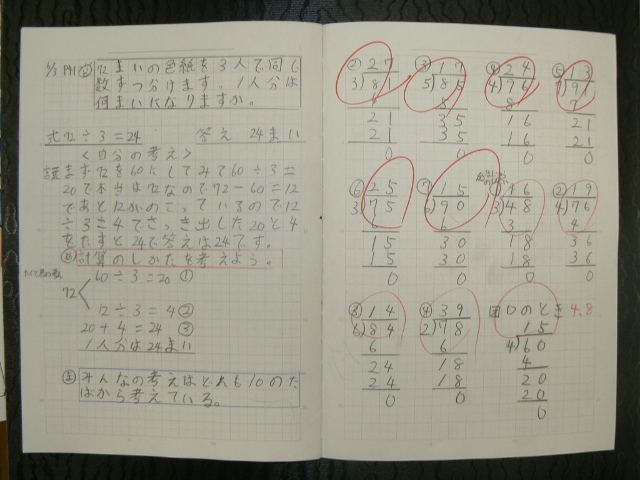 72まいの色紙を3人で同じ
数ずつ分けます。1人分は
何まいになりますか。
式72÷3=24 答え 24まい
<自分の考え>
まず72を60にしてみて60÷3=
20で本当は72なので72-60=12
であと12かのこっているので12
÷3=4でさっき出した20と4
をたすと24で答えは24です。
計算のしかたを考えよう。
60÷3=20①
72
12÷3=4②
20+4=24③
1人分は24まい
みんなの考えはどれも10のた
ばから考えている。
②27
3)8
21
21
0
③17
5)85
35
35
0
④24
4)96
8
16
16
0
13
7)91
7
21
21
0
⑥25
3)75
6
15
15
0
⑦15
6)90
6
30
30
0
16
3)48
3
18
18
0
②19
4)76
4
36
36
0
③14
6)84
6
24
24
0
④39
2)78
6
18
18
0
□のとき 4,8
15
4)60
4
20
20
0